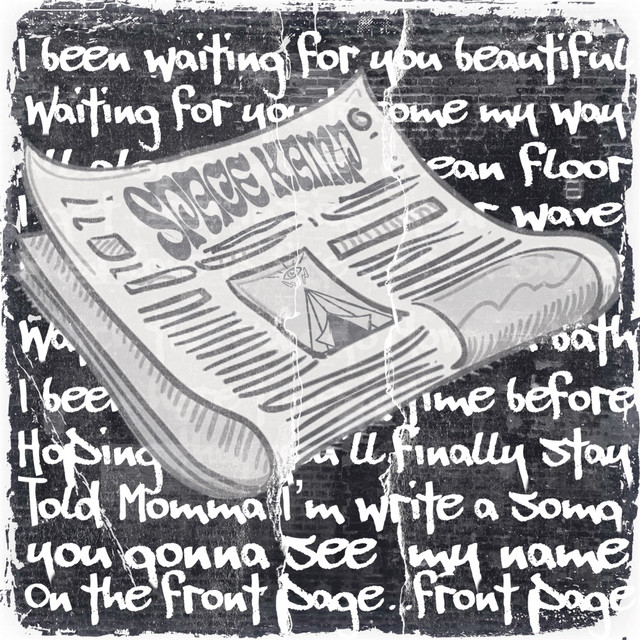 I been waiting for you beautiful
Waiting for you ome my way
ean floor
wave
SPACE KAMP
Wa bath
I bee ime before
Hoping u'll finally stay
Told Momma I'm write a song
you gonna see my name
On the front page...front page